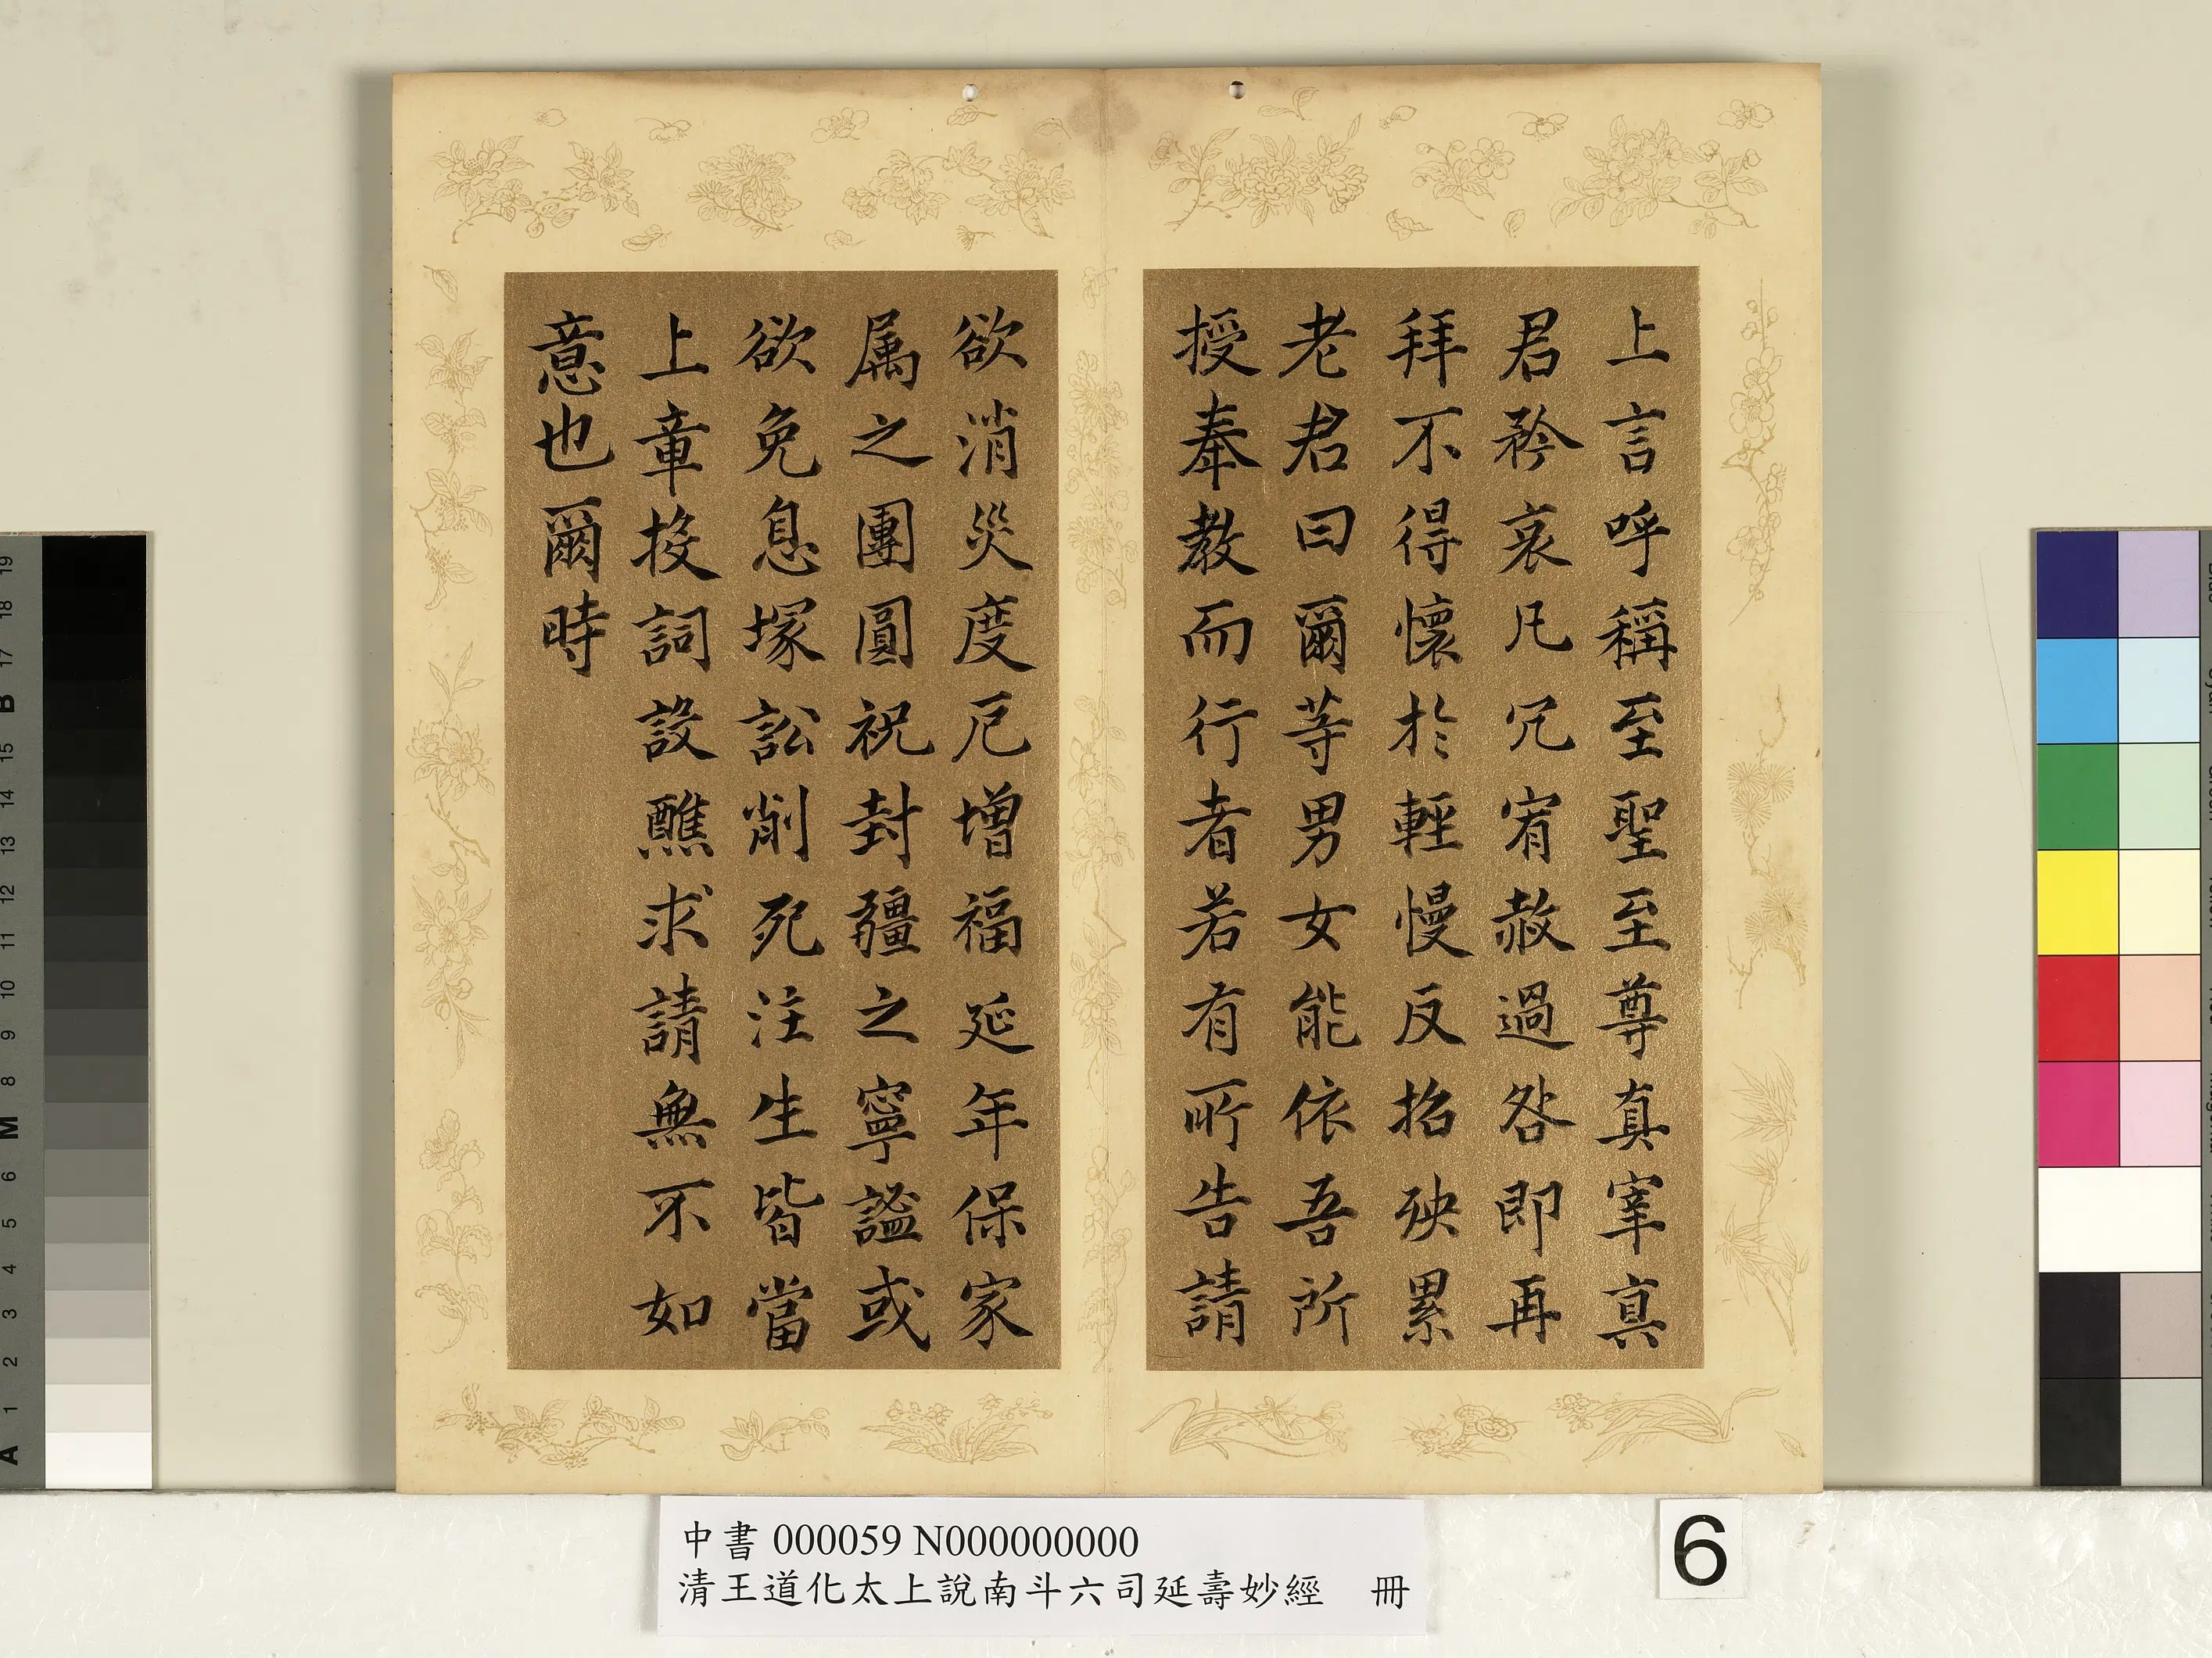 上言呼稱至聖至尊真宰真
君矜哀凡冗宥赦過咎即再
拜不得懷於輕慢反招殃累
老君曰爾等男女能依吾所
授奉教而行者若有所告請
欲消災度厄增福延年保家
属之團圓祝封疆之寧謐或
欲免息塚訟削死注生皆當
上章投詞設醮求請無不如
意也爾時
中書 000059 N000000000
清王道化太上說南斗六司延壽妙經 冊
6
19
18
17
B
15
14
13
12
11
10
9
8
M
6
5
4
3
2
1
A